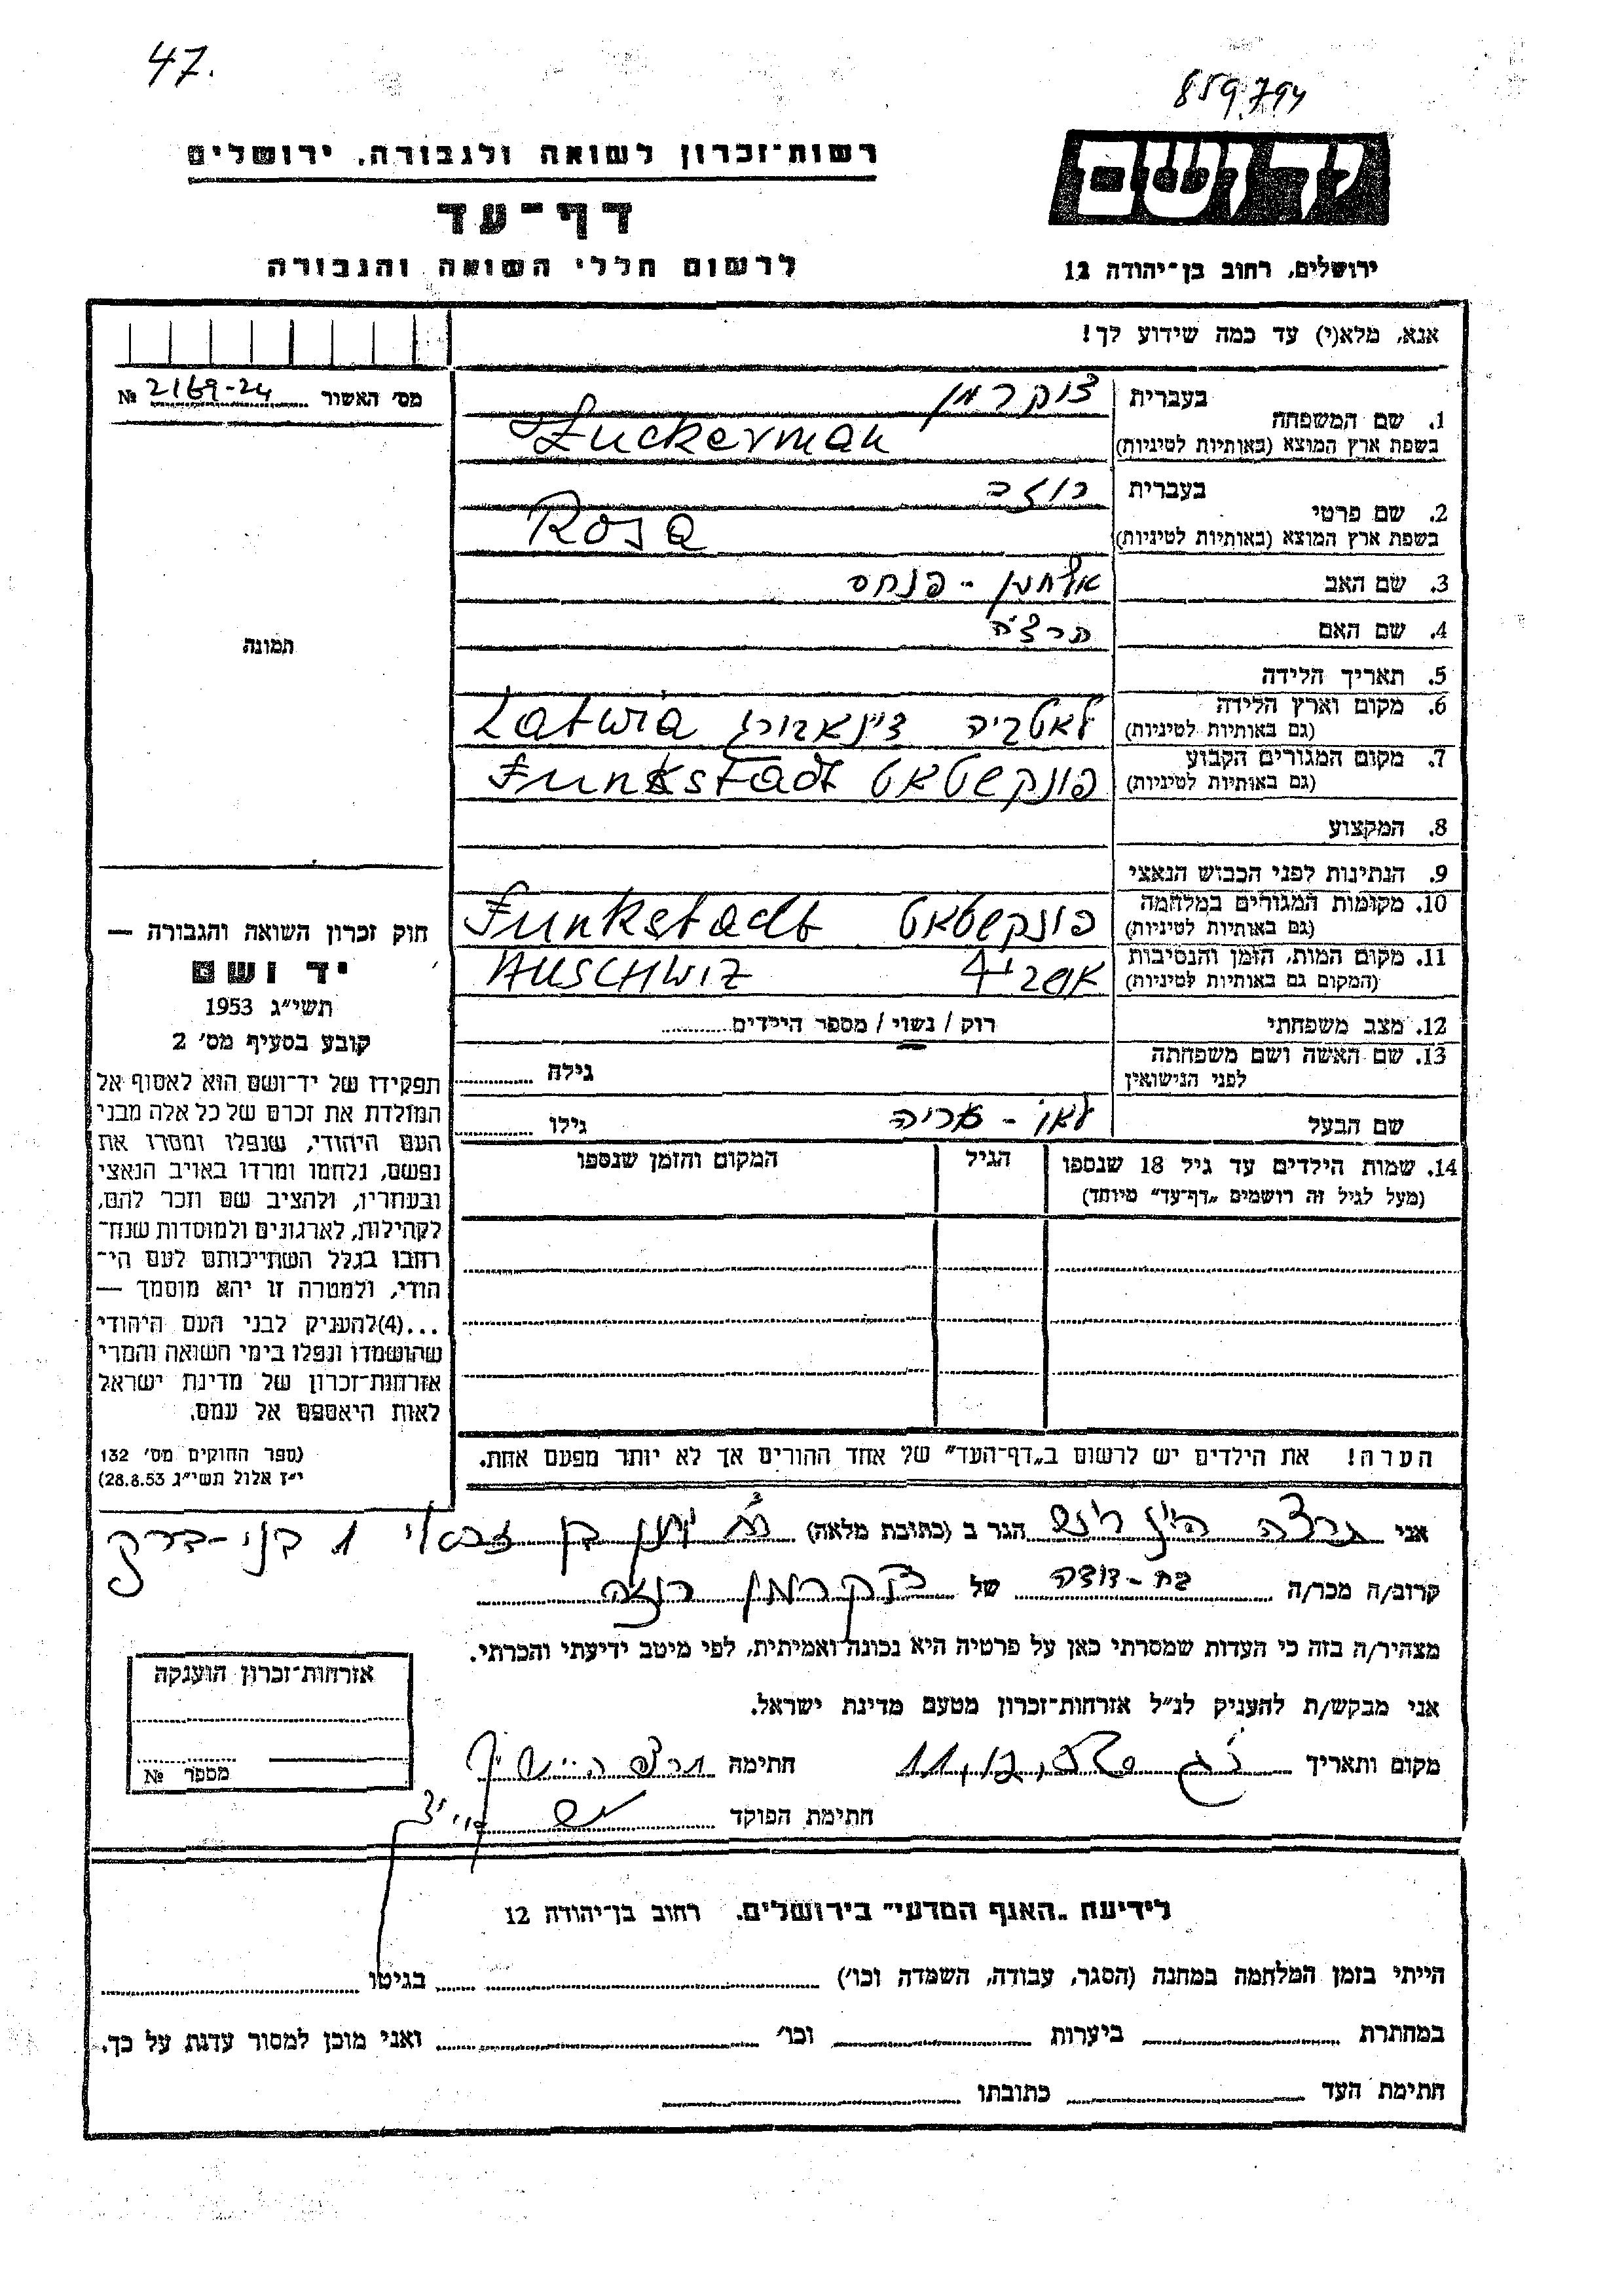 47.
859794
רשות־זכרון לשואה ולגבורה, ירושלים
דף־עד
לרשום חללי השואה והגבורה
יד ושם
ירושלים, רחוב בן־יהודה 12
אנא, מלא(י) עד כמה שידוע לך!
מס׳ האשור № 2169-24
תמונה
1. שם המשפחה
בעברית צוקרמן
בשפת ארץ המוצא (באותיות לטיניות) Zuckerman
2. שם פרטי
בעברית רוזה
בשפת ארץ המוצא (באותיות לטיניות) Rosa
3. שם האב אלחנן - פנחס
4. שם האם
5. תאריך הלידה
6. מקום וארץ הלידה
(גם באותיות לטיניות) לאטביה דינאבורג Latwia
7. מקום המגורים הקבוע
(גם באותיות לטיניות) פונקשטאט Funkstadt
8. המקצוע
9. הנתינות לפני הכבוש הנאצי
10. מקומות המגורים במלחמה
(גם באותיות לטיניות) פונקשטאט Funkstadt
11. מקום המות, הזמן והנסיבות
(המקום גם באותיות לטיניות) AUSCHWIZ
12. מצב משפחתי רוק / נשוי / מספר הילדים
13. שם האשה ושם משפחתה
לפני הנישואין גילה
שם הבעל לאו - אריה גילו
14. שמות הילדים עד גיל 18 שנספו
(מעל לגיל זה רושמים „דף־עד” מיוחד)
הגיל
המקום והזמן שנספו
הערה! את הילדים יש לרשום ב„דף־העד” של אחד ההורים אך לא יותר מפעם אחת.
חוק זכרון השואה והגבורה —
יד ושם
תשי״ג 1953
קובע בסעיף מס׳ 2
תפקידו של יד־ושם הוא לאסוף אל
המולדת את זכרם של כל אלה מבני
העם היהודי, שנפלו ומסרו את
נפשם, נלחמו ומרדו באויב הנאצי
ובעוזריו, ולהציב שם וזכר להם,
לקהילות, לארגונים ולמוסדות שנח־
רחבו בגלל השתייכותם לעם הי־
הודי, ולמטרה זו יהא מוסמך —
...(4) להעניק לבני העם היהודי
שהושמדו ונפלו בימי השואה והמרי
אזרחות־זכרון של מדינת ישראל
לאות היאספם אל עמם.
(ספר החוקים מס׳ 132
י״ז אלול תשי״ג 28.8.53)
אני הגר ב (כתובת מלאה) בן זכאי 1 בני-ברק
קרוב/ה מכר/ה בת-דודה של צוקרמן רוזה
מצהיר/ה בזה כי העדות שמסרתי כאן על פרטיה היא נכונה ואמיתית, לפי מיטב ידיעתי והכרתי.
אני מבקש/ת להעניק לנ״ל אזרחות־זכרון מטעם מדינת ישראל.
מקום ותאריך חתימה
חתימת הפוקד
אזרחות־זכרון הוענקה
מספר №
לידיעת „האגף המדעי” בירושלים, רחוב בן־יהודה 12
הייתי בזמן המלחמה במחנה (הסגר, עבודה, השמדה וכו׳) בגיטו
במחתרת ביערות וכו׳ ואני מוכן למסור עדות על כך.
חתימת העד כתובתו